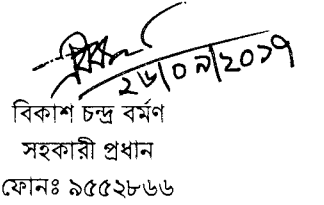 ২৬/০৯/২০১৭
বিকাশ চন্দ্র বর্মণ
সহকারী প্রধান
ফোনঃ ৯৫৫২৮৬৬